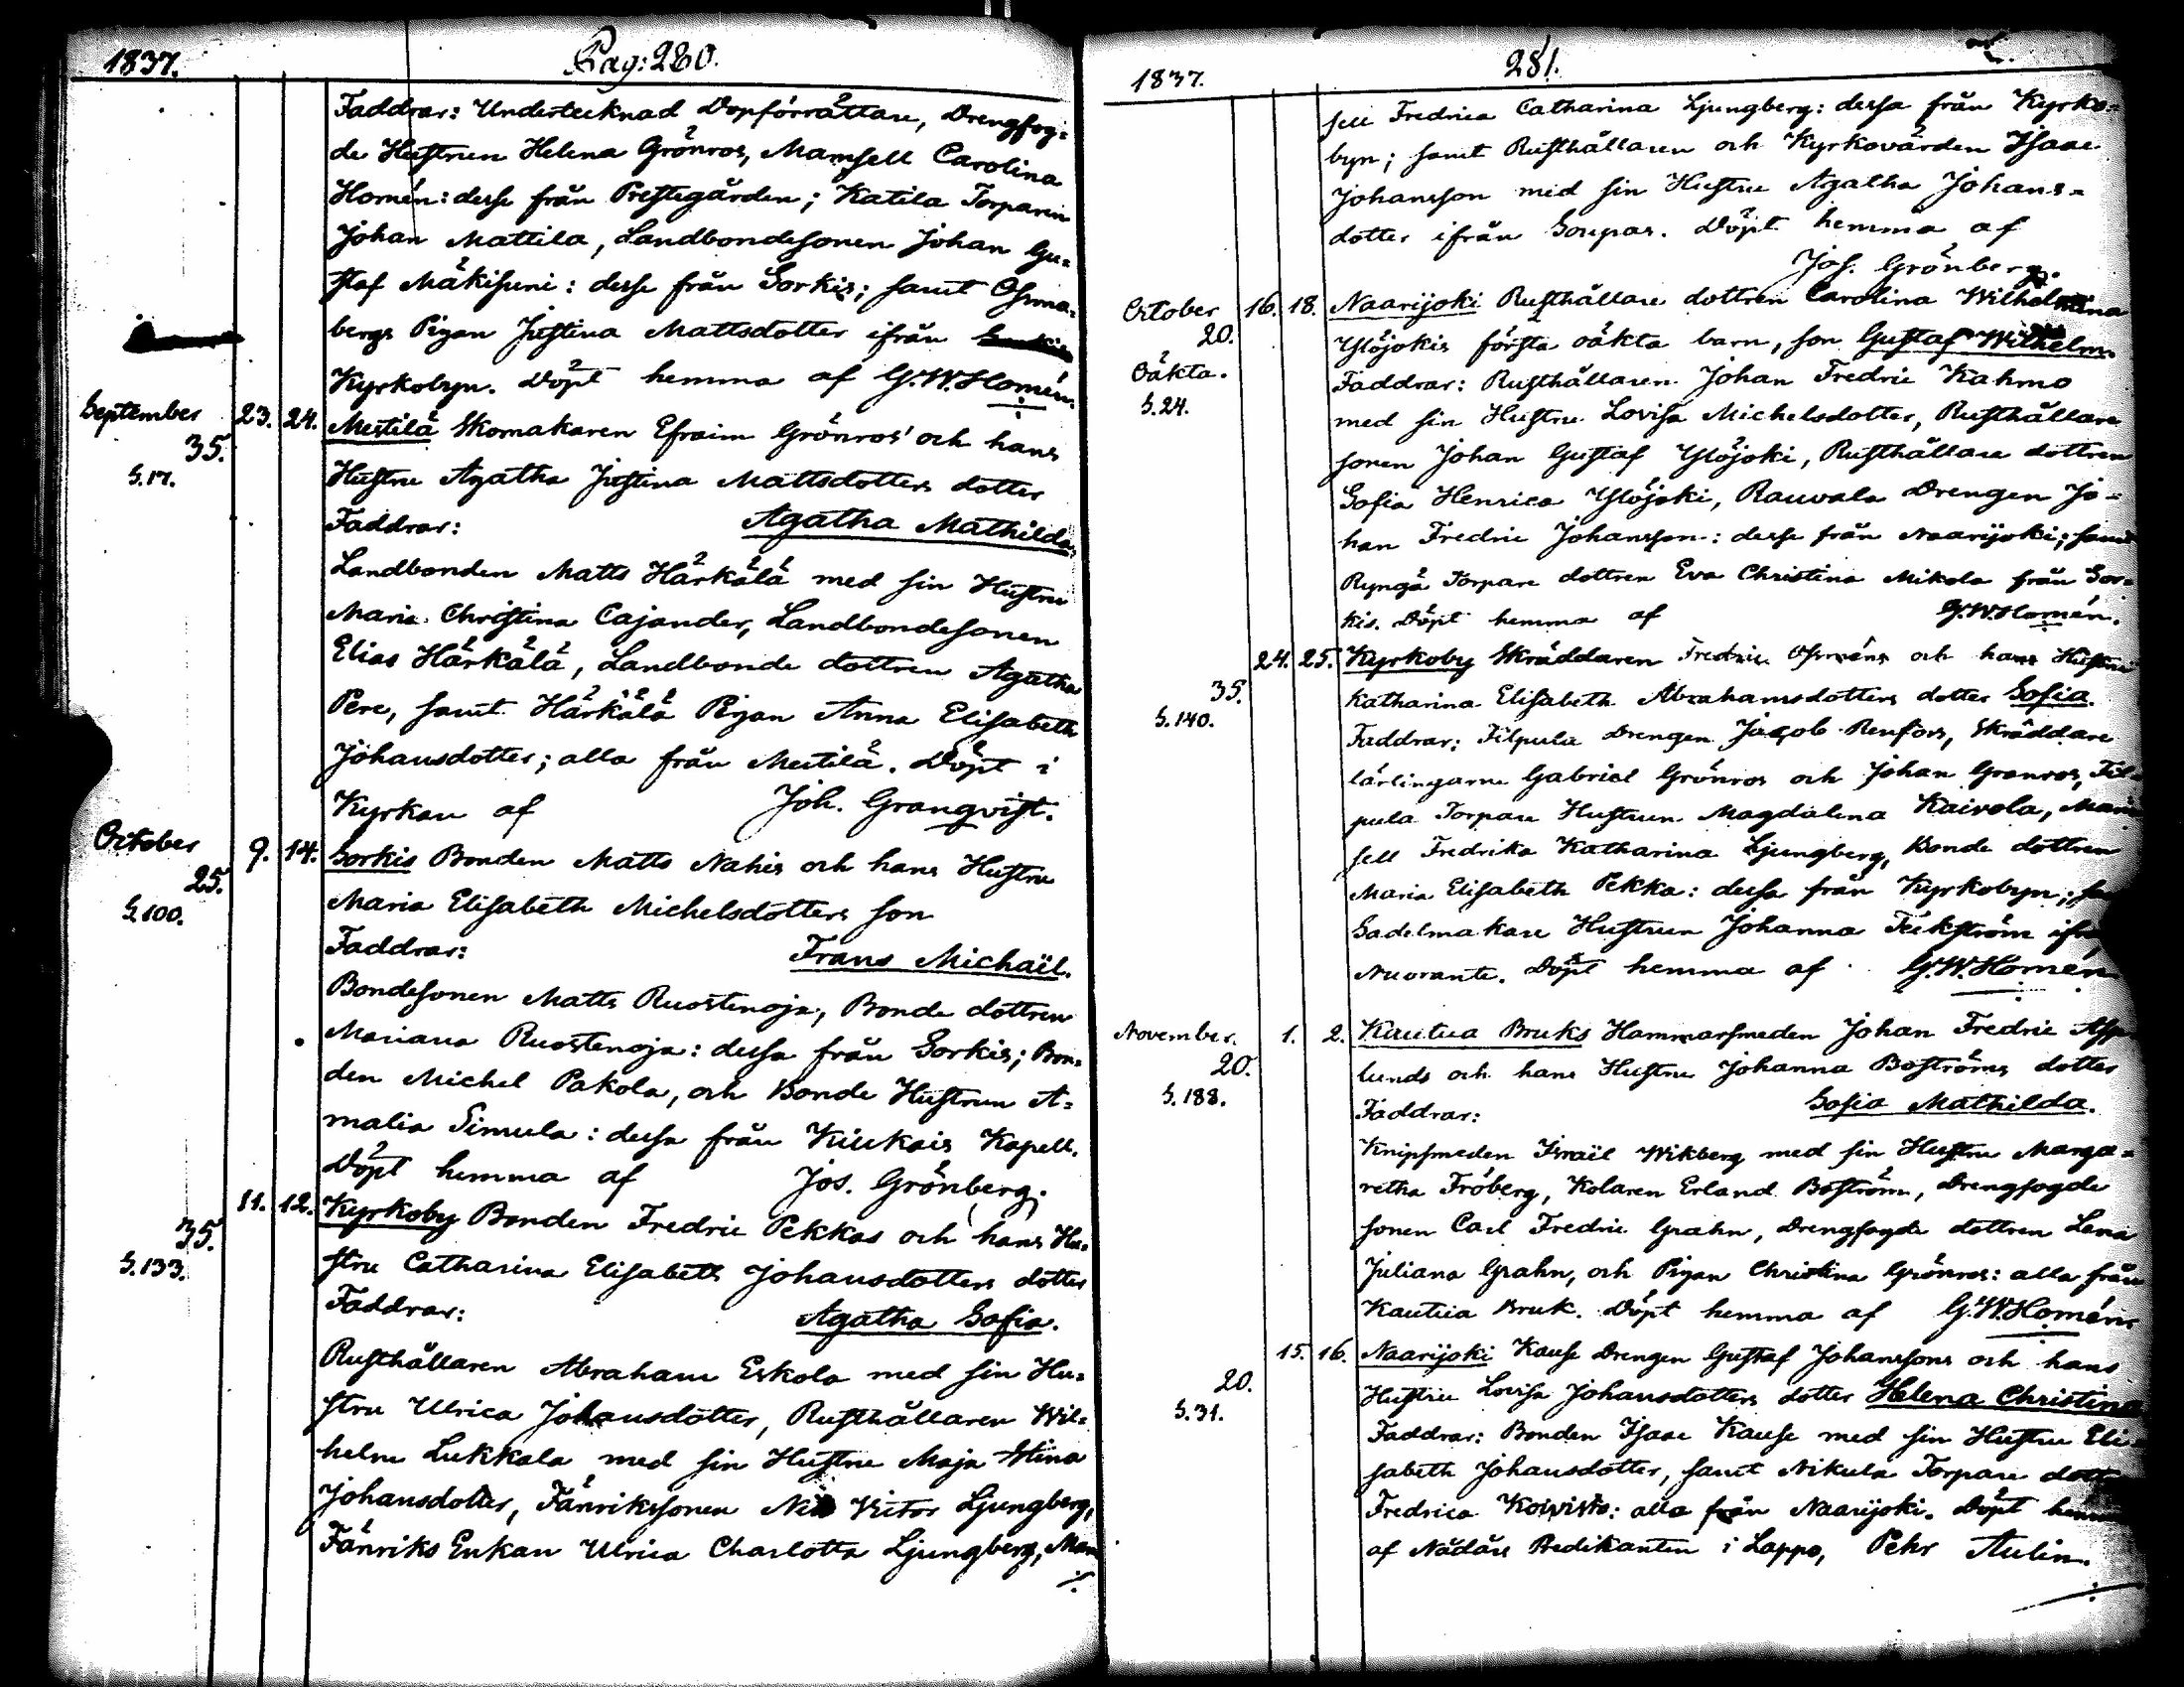 1837.
Pag: 280.
Faddrar: Undertecknad Dopförrättare, Drengfog=
de Hustrun Helena Grönros, Mamsell Carolina
Homén: desse från Prestegården; Katila Torparen
Johan Mattila, Landbondesonen Johan Gu=
staf Mäkisuni: desse från Sorkis; samt Osma=
bergs Pigan Justina Mattsdotter ifrån
Kyrkobyn. Döpt hemma af G.W.Homén.
September 23. 24. Mestilä Skomakaren Efraim Grönros' och hans
35.
S.17.
Hustru Agatha Justina Mattsdotters dotter
Faddrar: Agatha Mathilda.
Landbonden Matts Härkälä med sin Hustru
Maria Christina Cajander, Landbondesonen
Elias Härkälä, Landbonde dottren Agatha
Pere, samt Härkälä Pigan Anna Elisabeth
Johansdotter; alla från Mestilä. Döpt i
Kyrkan af Joh. Granqvist.
October 9. 14. Sorkis Bonden Matts Nahis och hans Hustru
25.
S.100.
Maria Elisabeth Michelsdotters son
Faddrar: Frans Michaël.
Bondesonen Matts Ruostenoja, Bonde dottren
Mariana Ruostenoja: dessa från Sorkis; Bon=
den Michel Pakola, och Bonde Hustrun A=
malia Simula: dessa från Kiukais Kapell.
Döpt hemma af Jos. Grönberg.
11. 12. Kyrkoby Bonden Fredric Pekkas och hans Hu=
35.
S.133.
stru Catharina Elisabeth Johansdotters dotter
Faddrar: Agatha Sofia.
Rusthållaren Abraham Eskola med sin Hu=
stru Ulrica Johansdotter, Rusthållaren Wil=
helm Lukkala med sin Hustru Maja Stina
Johansdotter, Fänrikssonen Nils Victor Ljungberg,
Fänriks Enkan Ulrica Charlotta Ljungberg, Mam
1837.
281.
sell Fredrica Catharina Ljungberg: dessa från Kyrko=
byn; samt Rusthållaren och Kyrkovärden Isaac
Johansson med sin Hustru Agatha Johans=
dotter ifrån Soupas. Döpt hemma af
Jos. Grönberg.
October 16. 18. Naarijoki Rusthållare dottren Carolina Wilhelmina
20.
Oäkta.
S.24.
Ylöjokis första oäkta barn, son Gustaf Wilhelm.
Faddrar: Rusthållaren Johan Fredric Kahmo
med sin Hustru Lovisa Michelsdotter, Rusthållare
sonen Johan Gustaf Ylöjoki, Rusthållare dottren
Sofia Henrica Ylöjoki, Rauvala Drengen Jo=
han Fredric Johansson: desse från Naarijoki; samt
Ryngä Torpare dottren Eva Christina Mikola från Sor=
kis. Döpt hemma af G.W.Homén.
24. 25. Kyrkoby Skräddaren Fredric och hans Hustru
35.
S.140.
Katharina Elisabeth Abrahamsdotters dotter Sofia.
Faddrar: Filpula Drengen Jacob Renfors, Skräddare
lärlingarne Gabriel Grönros och Johan Granros, Fil=
pula Torpare Hustrun Magdalena Kaivola, Mam
sell Fredrika Katharina Ljungberg, Bonde dottren
Maria Elisabeth Pekka: dessa från Kyrkobyn;
Sadelmakare Hustrun Johanna
Nuorante. Döpt hemma af G.W.Homén
November. 1. 2. Kautua Bruks Hammarsmeden Johan Fredric Asp
20.
S.188.
lunds och hans Hustru Johanna Boströms dotter
Faddrar: Sofia Mathilda.
Knipsmeden Israël Wikberg med sin Hustru Marga=
retha Fröberg, Kolaren Erland Boström, Drengfogde
sonen Carl Fredric Grahn, Drengfogde dottren Lena
Juliana Grahn, och Pigan Christina Grönros: alla från
Kautua Bruk. Döpt hemma af G.W.Homén
15. 16. Naarijoki Kause Drengen Gustaf Johanssons och hans
20.
S.31.
Hustru Lovisa Johansdotters dotter Helena Christina
Faddrar: Bonden Isaac Kause med sin Hustru Eli=
sabeth Johansdotter, samt Nikula Torpare dotter
Fredrica Koivisto: alla från Naarijoki. Döpt hemma
af Nådårs Predikanten i Lappo, Pehr Aulin.